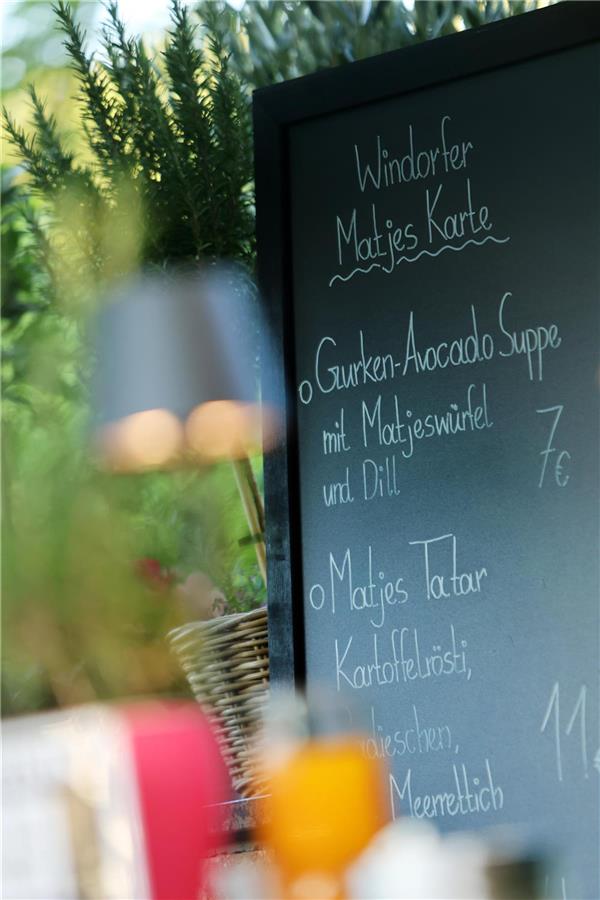 Windorfer
Matjes Karte
Gurken-Avocado Suppe
mit Matjeswürfel
und Dill 7€
Matjes Tatar
Kartoffelrösti,
Radieschen, 11€
Meerrettich